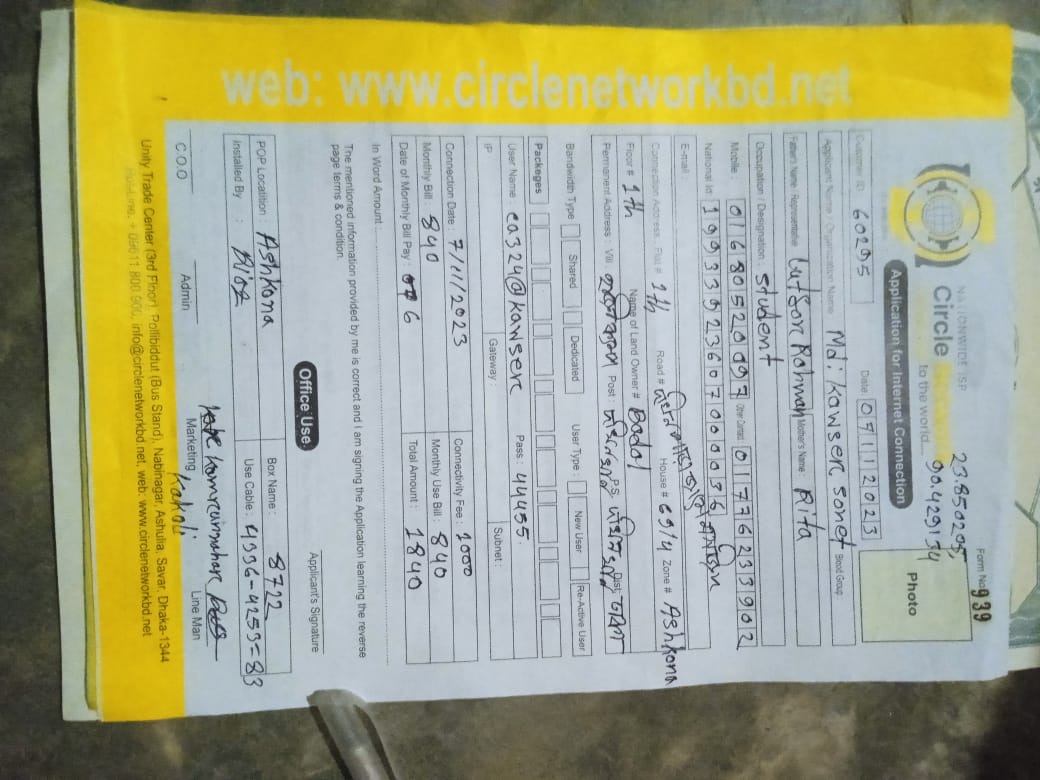 Form No 939
23.850205
90.429134
NATIONWIDE ISP
Circle
to the world....
Application for Internet Connection
Photo
Customer ID: 60295 Date 07112023
Applicant Name / Organization Name Md: Kawser sonet Blood Group
Father's Name / Representative Lutfor Rohman Mother's Name: Rita
Occupation / Designation: Student
Mobile: 01680520097 Other Contact 01776233902
National Id: 19933392360700036
E-mail:
Connection Address: Flat # 1th Road # House # 69/4 Zone # Ashkona
Floor # 1th Name of Land Owner # Badal
Permanent Address: Vill Post: P.S Dist:
Bandwidth Type Shared Dedicated User Type: New User Re-Active User
Packages
User Name: ca324@kawserc Pass: 44455.
IP Gateway: Subnet:
Connection Date: 7/11/2023 Connectivity Fee: 1000
Monthly Bill: 840 Monthly Use Bill: 840
Date of Monthly Bill Pay: 6 Total Amount: 1840
In Word Amount:
The mentioned information provided by me is correct and I am signing the Application learning the reverse
page terms & condition.
Applicant's Signature
Office Use.
POP Locatition: Ashkona Box Name: 8722
Installed By: Use Cable: 4336-4253=83
C.O.O Admin Marketing Line Man
Unity Trade Center (3rd Floor), Pollibiddut (Bus Stand), Nabinagar, Ashulia, Savar, Dhaka-1344
info@circlenetworkbd.net, web: www.circlenetworkbd.net
web: www.circlenetworkbd.net